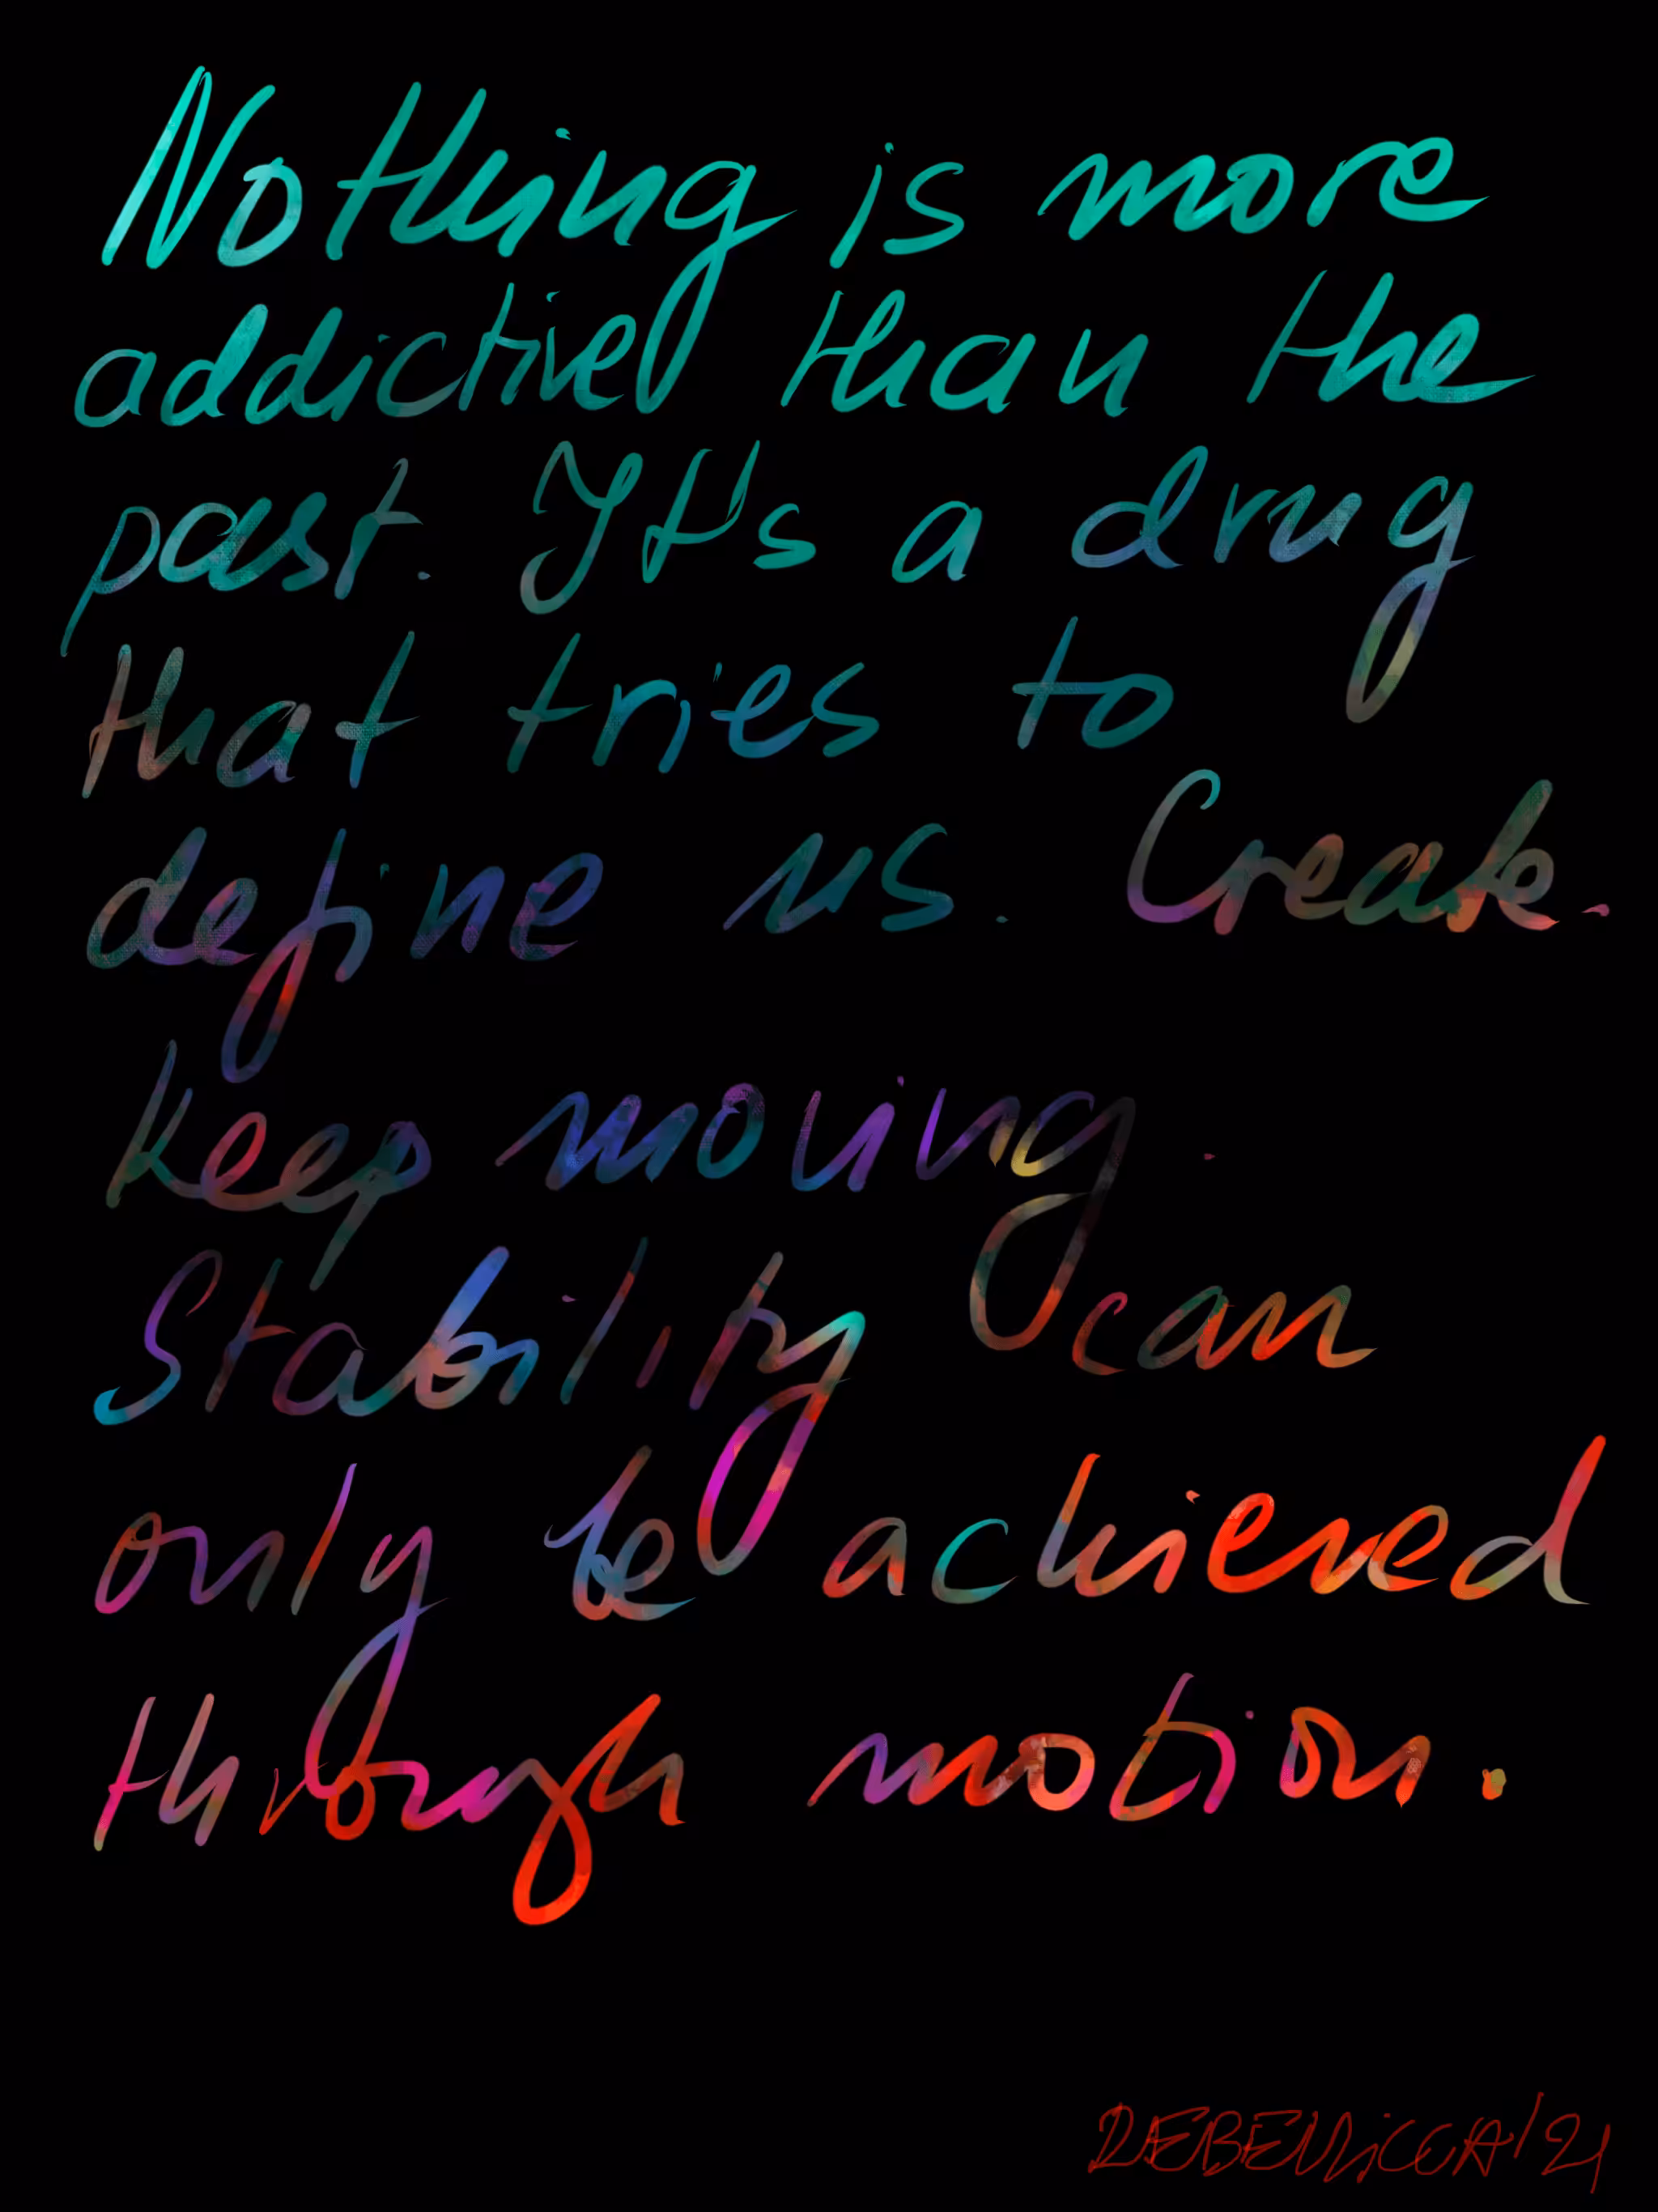 Nothing is more
addictive than the
past. It's a drug
that tries to
define us. Create.
keep moving.
Stability can
only be achieved
through motion.